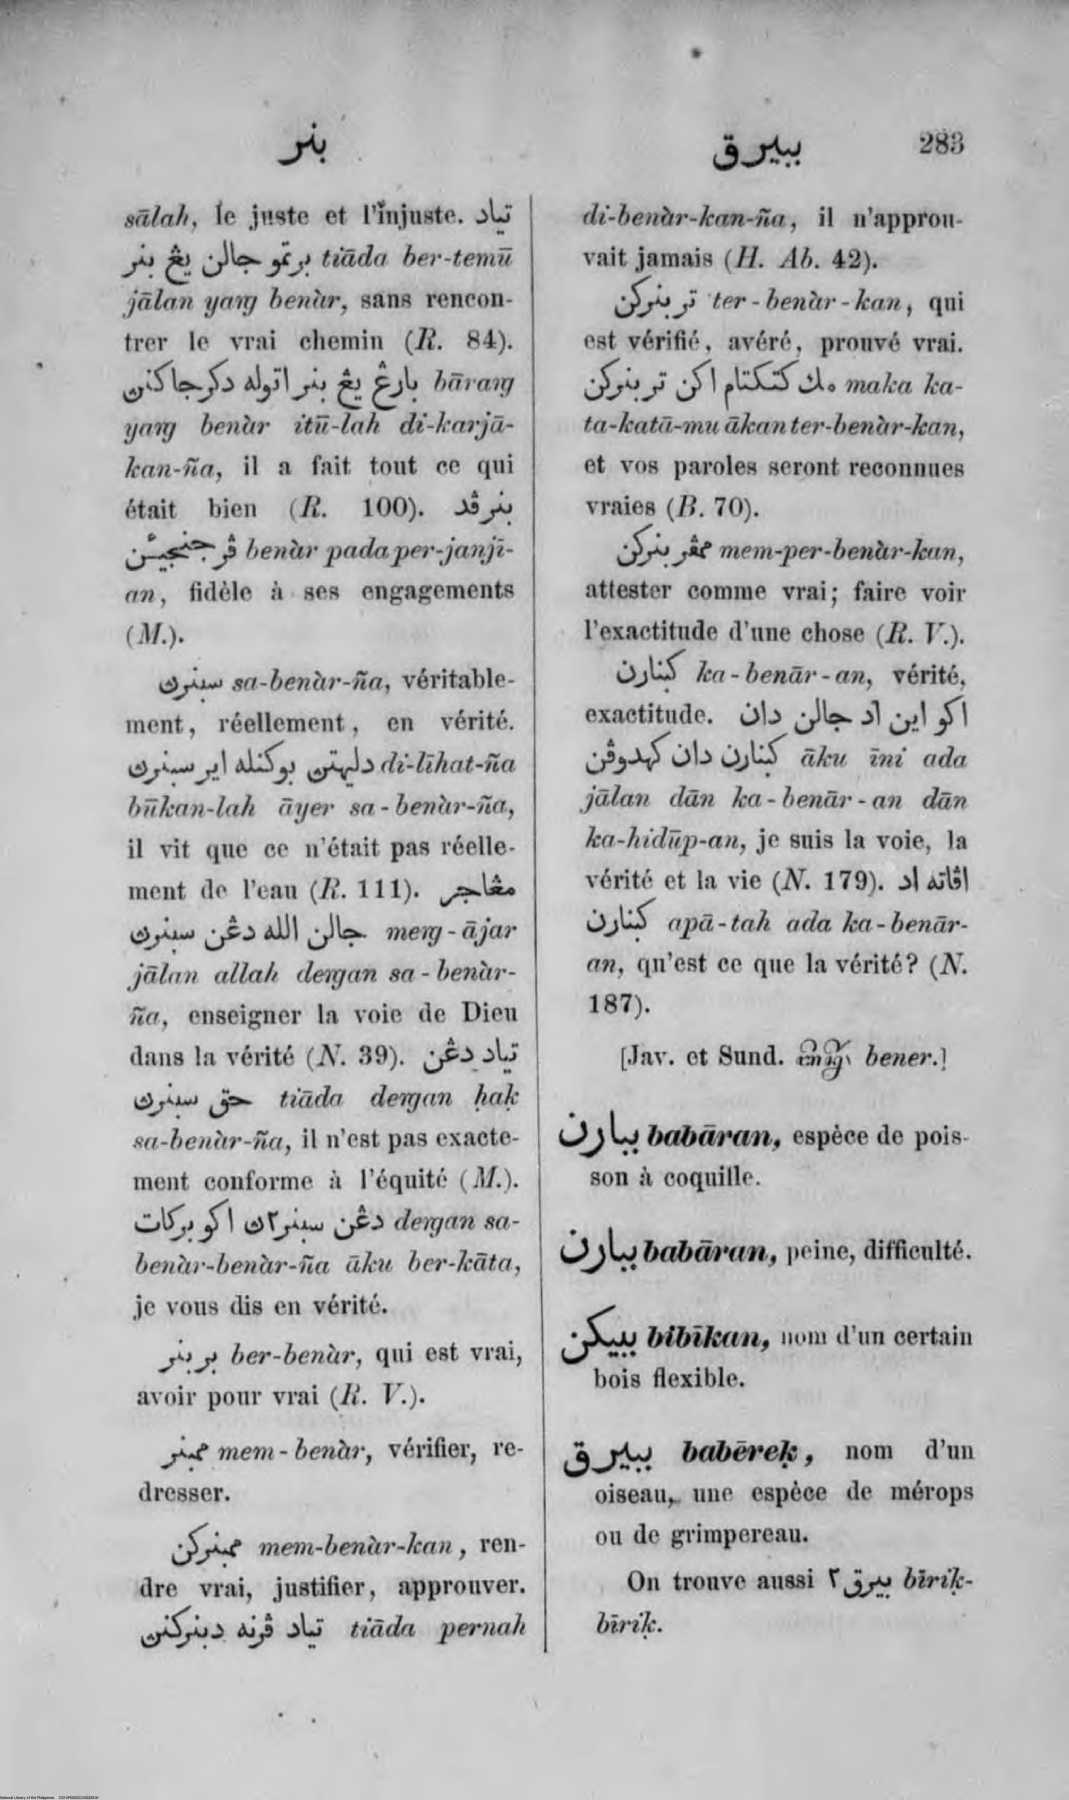 بنر
ببيرق
283
sālah, le juste et l'injuste. تياد
برتمو جالن يڠ بنر tiāda ber-temū
jālan yang benàr, sans rencon-
trer le vrai chemin (R. 84).
بارڠ يڠ بنر اتوله دكرجاكنن bārang
yang benàr itū-lah di-karjā-
kan-ña, il a fait tout ce qui
était bien (R. 100). بنر ڤد
ڤرجنجيئن benàr pada per-janjī-
an, fidèle à ses engagements
(M.).
سبنرڽ sa-benàr-ña, véritable-
ment, réellement, en vérité.
دليهتن بوكنله اير سبنرڽ di-līhat-ña
būkan-lah āyer sa-benàr-ña,
il vit que ce n'était pas réelle-
ment de l'eau (R. 111). مڠاجر
جالن الله دڠن سبنرڽ meng-ājar
jālan allah dengan sa-benàr-
ña, enseigner la voie de Dieu
dans la vérité (N. 39). تياد دڠن
حق سبنرڽ tiāda dengan ḥaḳ
sa-benàr-ña, il n'est pas exacte-
ment conforme à l'équité (M.).
دڠن سبنر٢ڽ اكو بركات dengan sa-
benàr-benàr-ña āku ber-kāta,
je vous dis en vérité.
بربنر ber-benàr, qui est vrai,
avoir pour vrai (R. V.).
ممبنر mem-benàr, vérifier, re-
dresser.
ممبنركن mem-benàr-kan, ren-
dre vrai, justifier, approuver.
تياد ڤرنه دبنركنن tiāda pernah
di-benàr-kan-ña, il n'approu-
vait jamais (H. Ab. 42).
تربنركن ter-benàr-kan, qui
est vérifié, avéré, prouvé vrai.
مك كتكتام اكن تربنركن maka ka-
ta-katā-mu ākan ter-benàr-kan,
et vos paroles seront reconnues
vraies (B. 70).
ممڤربنركن mem-per-benàr-kan,
attester comme vrai; faire voir
l'exactitude d'une chose (R. V.).
كبنارن ka-benār-an, vérité,
exactitude. اكو اين اد جالن دان
كبنارن دان كهدوڤن āku īni ada
jālan dān ka-benār-an dān
ka-hidūp-an, je suis la voie, la
vérité et la vie (N. 179). اڤاته اد
كبنارن apā-tah ada ka-benār-
an, qu'est ce que la vérité? (N.
187).
[Jav. et Sund. bener.]
ببارن babāran, espèce de pois-
son à coquille.
ببارن babāran, peine, difficulté.
ببيكن bibīkan, nom d'un certain
bois flexible.
ببيرق babēreḳ, nom d'un
oiseau, une espèce de mérops
ou de grimpereau.
On trouve aussi بيرق٢ bīriḳ-
bīriḳ.